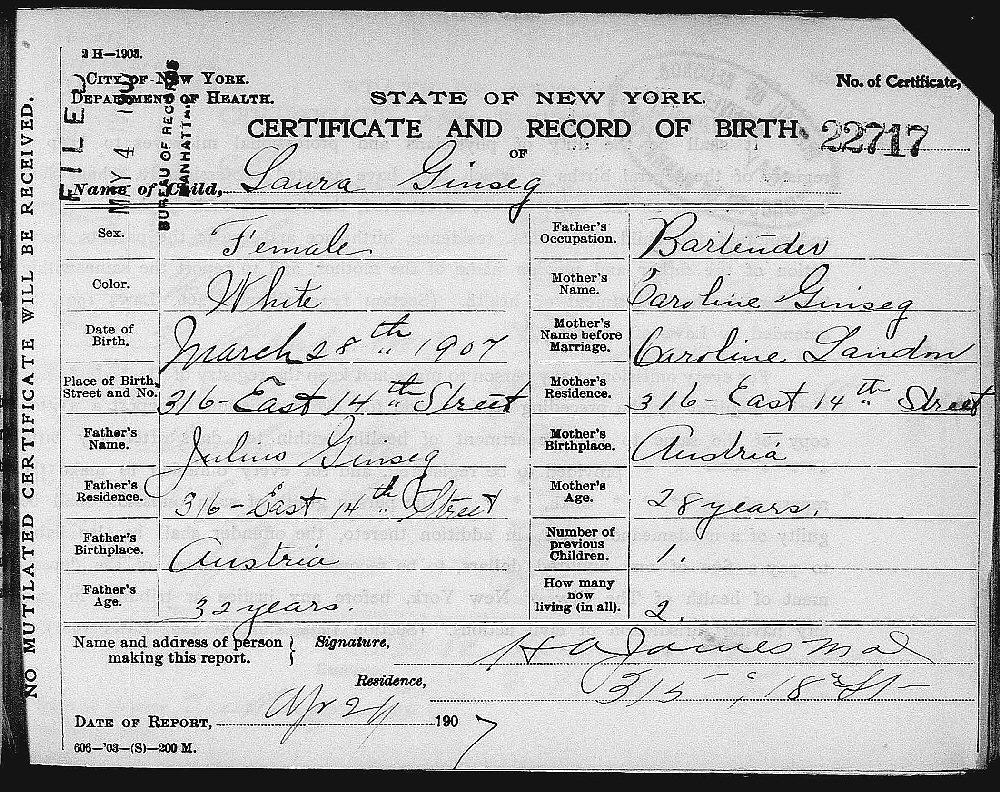 2 H—1903.
CITY OF NEW YORK.
DEPARTMENT OF HEALTH.
FILED
MAY 4
BUREAU OF RECORDS
MANHATTAN
No. of Certificate,
STATE OF NEW YORK.
CERTIFICATE AND RECORD OF BIRTH
22717
OF
Name of Child, Laura Ginseg
Sex. Female
Father's Occupation. Bartender
Color. White
Mother's Name. Caroline Ginseg
Date of Birth. March 28th 1907
Mother's Name before Marriage. Caroline Landon
Place of Birth, Street and No. 316 - East 14th Street
Mother's Residence. 316 - East 14th Street
Father's Name. Julius Ginseg
Mother's Birthplace. Austria
Father's Residence. 316 - East 14th Street
Mother's Age. 28 years.
Father's Birthplace. Austria
Number of previous Children. 1.
Father's Age. 32 years.
How many now living (in all). 2.
Name and address of person making this report.
Signature, H A James M D
Residence, 315 E 18 St
DATE OF REPORT, Apr 24 1907
606—'03—(S)—200 M.
NO MUTILATED CERTIFICATE WILL BE RECEIVED.